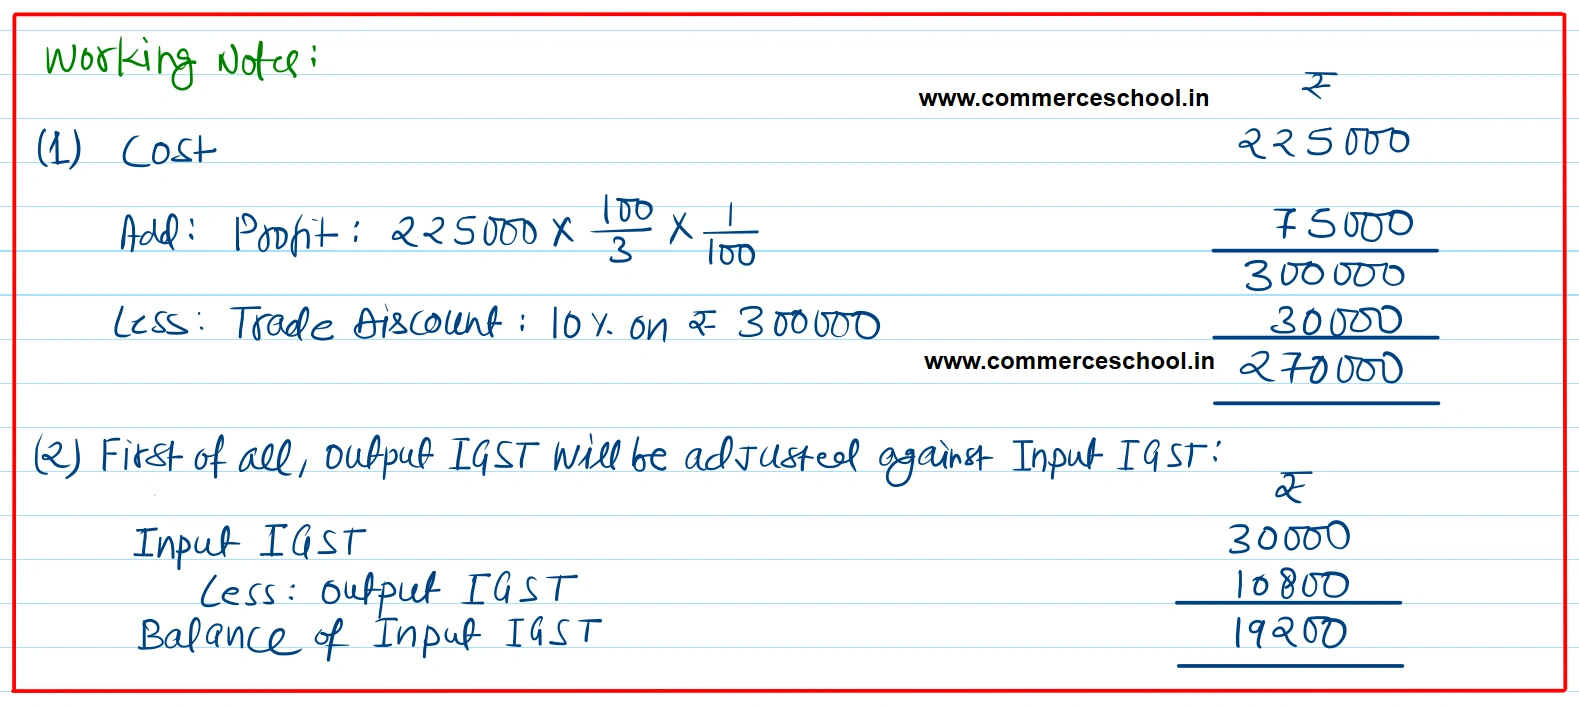 Working Notes:
www.commerceschool.in ₹
(1) Cost 225000
Add: Profit: 225000 × 100/3 × 1/100 75000
300000
Less: Trade Discount: 10% on ₹ 300000 30000
www.commerceschool.in 270000
(2) First of all, output IGST will be adjusted against Input IGST:
₹
Input IGST 30000
Less: output IGST 10800
Balance of Input IGST 19200